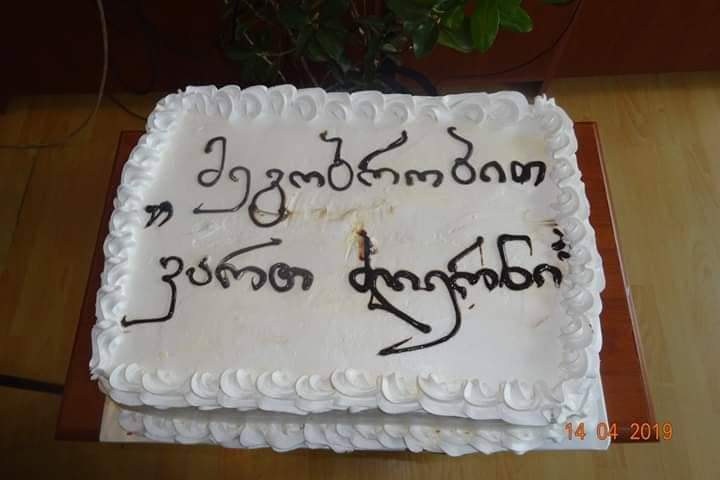 „მეგობრობით
ვართ ძლიერნი“
14 04 2019